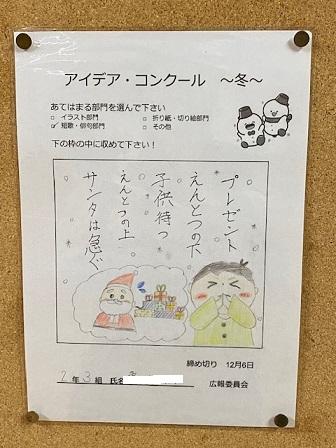 アイデア・コンクール ～冬～
あてはまる部門を選んで下さい
□ イラスト部門
□ 折り紙・切り絵部門
☑ 短歌・俳句部門
□ その他
下の枠の中に収めて下さい！
プレゼント
えんとつの下
子供待つ
えんとつの上
サンタは急ぐ
締め切り 12月6日
2年3組 氏名
広報委員会